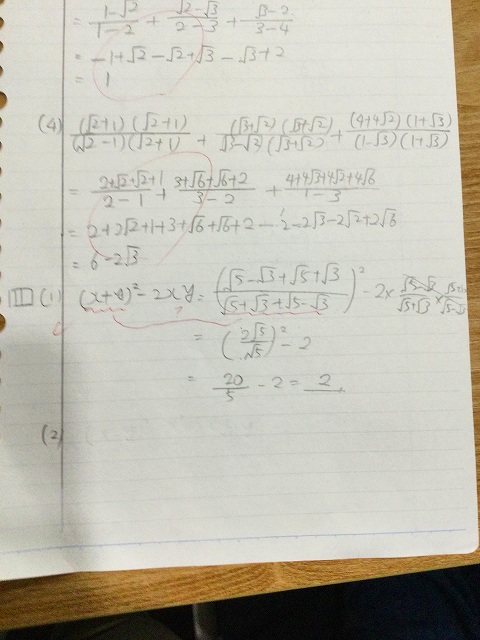 = (1-√2)/(1-2) + (√2-√3)/(2-3) + (√3-2)/(3-4)
= -1+√2-√2+√3-√3+2
= 1
(4) (√2+1)(√2+1)/(√2-1)(√2+1) + (√3+√2)(√3+√2)/(√3-√2)(√3+√2) + (4+4√2)(1+√3)/(1-√3)(1+√3)
= (2+√2+√2+1)/(2-1) + (3+√6+√6+2)/(3-2) + (4+4√3+4√2+4√6)/(1-3)
= 2+2√2+1+3+√6+√6+2-2-2√3-2√2+2√6
= 6-2√3
III (1) (x+y)²-2xy = ((√5-√3+√5+√3)/(√5+√3+√5-√3))² - 2×(√5-√3)/(√5+√3)×
= (2√5/√5)² - 2
= 20/5 - 2 = 2
(2)